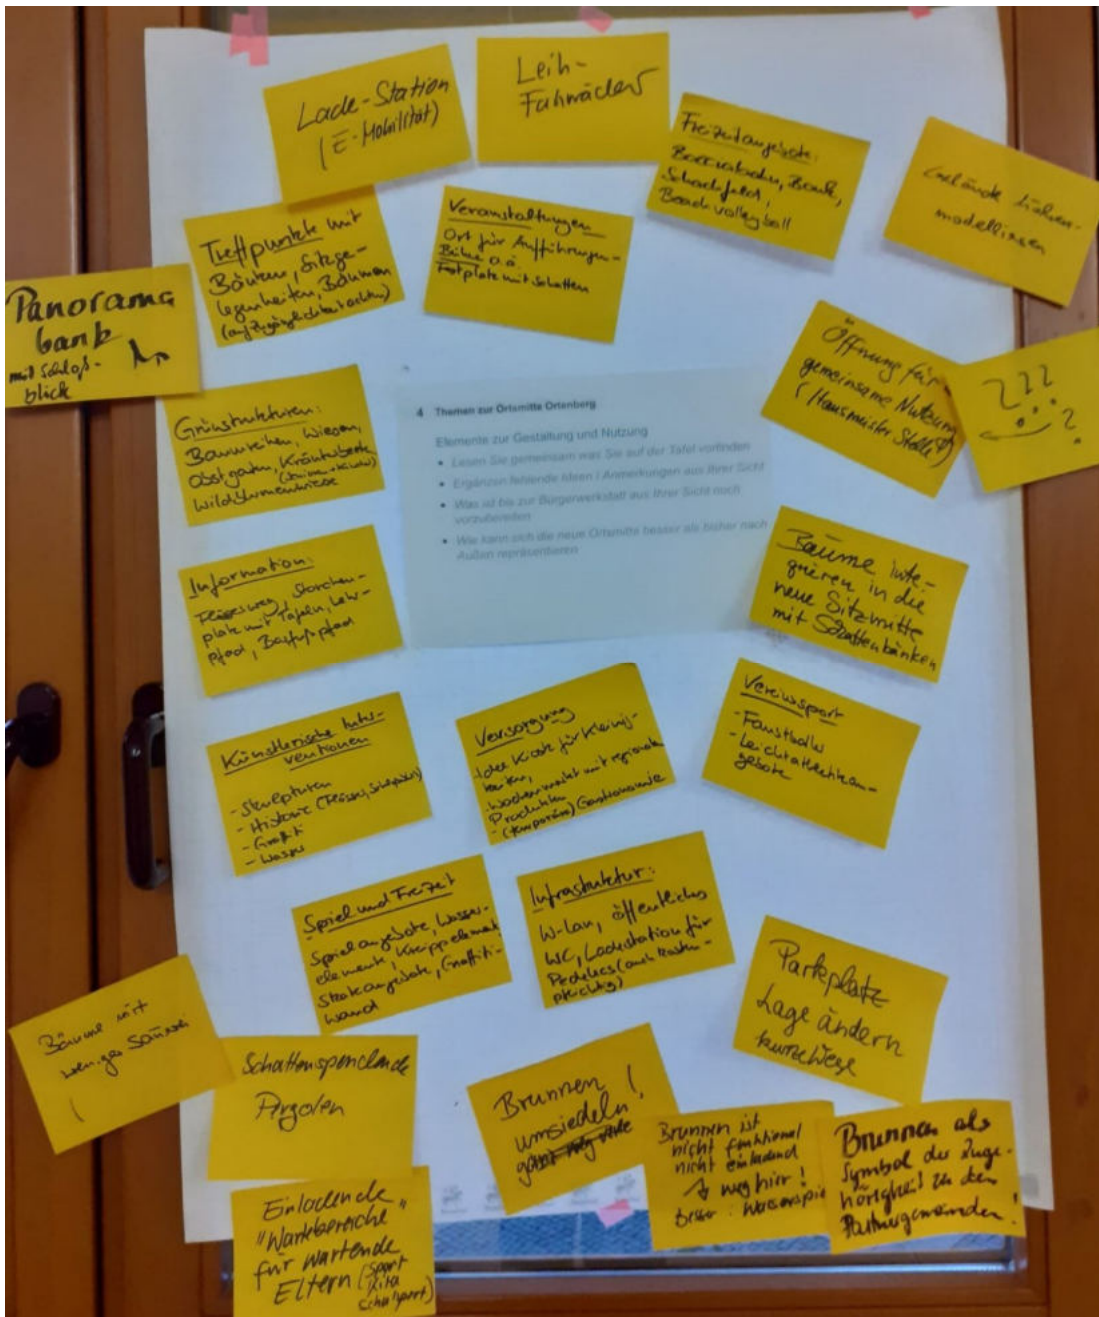 Lade-Station
(E-Mobilität)
Leih-
Fahrräder
Freizeitangebote:
Bocciabahn, Bank,
Schachfeld,
Beachvolleyball
Gelände
modellieren
Treffpunkte mit
Bänken, Sitzge-
legenheiten, Bäumen
(auf Zugänglichkeit achten)
Veranstaltungen
Ort für Aufführungen-
Bühne o.ä.
Festplatz mit Schatten
Panorama
bank
mit Schloß-
blick
Öffnung für
gemeinsame Nutzung
(Hausmeister Stelle)
???
?
Grünstrukturen:
Baumreihen, Wiesen,
Obstgarten, Kräuterbeete
Wildblumenwiese
4 Themen zur Ortsmitte Ortenberg
Elemente zur Gestaltung und Nutzung
• Lesen Sie gemeinsam was Sie auf der Tafel vorfinden
• Ergänzen fehlende Ideen / Anmerkungen aus Ihrer Sicht
• Was ist bis zur Bürgerwerkstatt aus Ihrer Sicht noch
vorzubereiten
• Wie kann sich die neue Ortsmitte besser als bisher nach
Außen repräsentieren
Information:
Storchen-
platz mit Tafeln, Lehr-
pfad, Barfußpfad
Bäume inte-
grieren in die
neue Sitzmitte
mit Schattenbänken
Künstlerische Inter-
ventionen
- Skulpturen
- Historie
- Graffiti
- Wasser
Versorgung
- Idee Kiosk für Kleinig-
keiten,
- Wochenmarkt mit regionalen
Produkten
- (temporäre) Gastronomie
Vereinssport
- Faustball
- Leichtathletikan-
gebote
Spiel und Freizeit
Spielangebote, Wasser-
elemente, Kneippelement
Skateangebote, Graffiti-
wand
Infrastruktur:
W-Lan, öffentliches
WC, Ladestation für
Pedelecs (auch kosten-
pflichtig)
Parkplatz
Lage ändern
kurze Wege
Bäume mit
weniger
!
Schattenspendende
Pergolen
Brunnen !
umsiedeln
Brunnen ist
nicht funktional
nicht einladend
→ weg hier !
besser : Wasserspiel
Brunnen als
Symbol der Zuge-
hörigkeit zu den
Partnergemeinden !
Einladende
"Wartebereiche"
für wartende
Eltern (Sport
Kita
Schulsport)